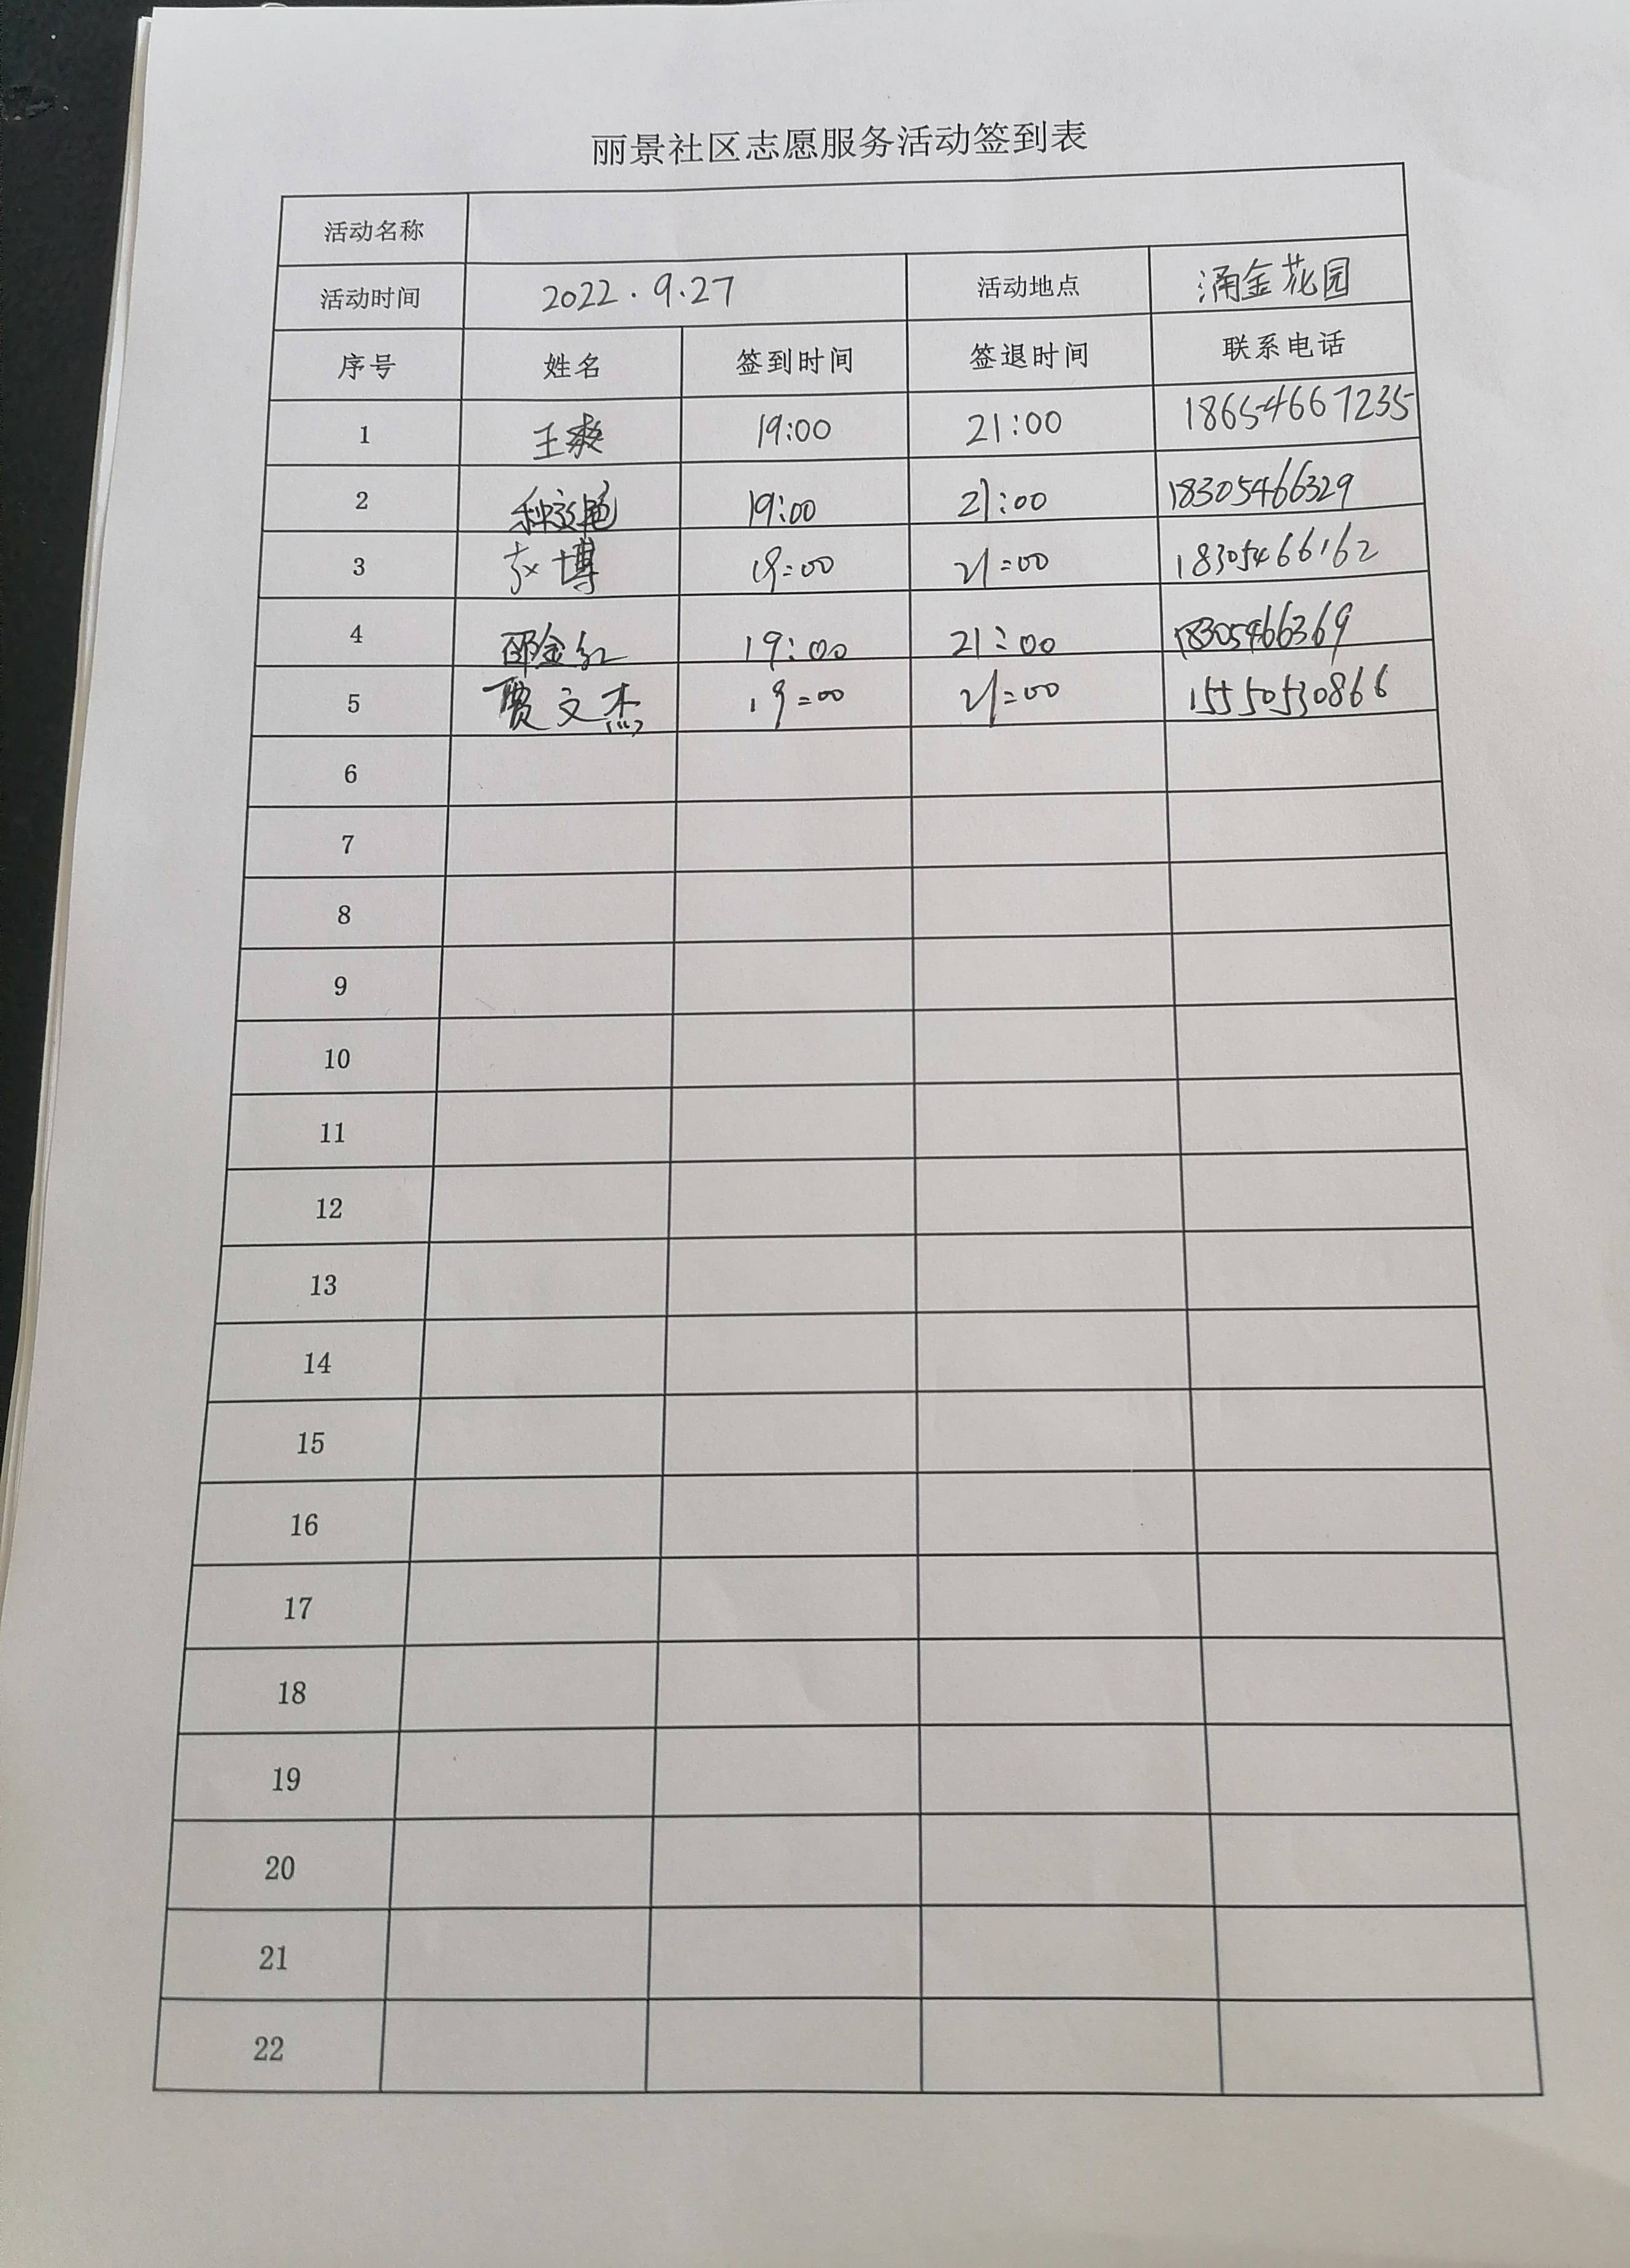 丽景社区志愿服务活动签到表
活动名称
活动时间 2022.9.27 活动地点 涌金花园
序号 姓名 签到时间 签退时间 联系电话
1 王爽 19:00 21:00 18654667235
2 19:00 21:00 18305466329
3 博 19:00 21:00 18305466162
4 邵金红 19:00 21:00 18305466369
5 贾文杰 19:00 21:00 15550530866
6
7
8
9
10
11
12
13
14
15
16
17
18
19
20
21
22